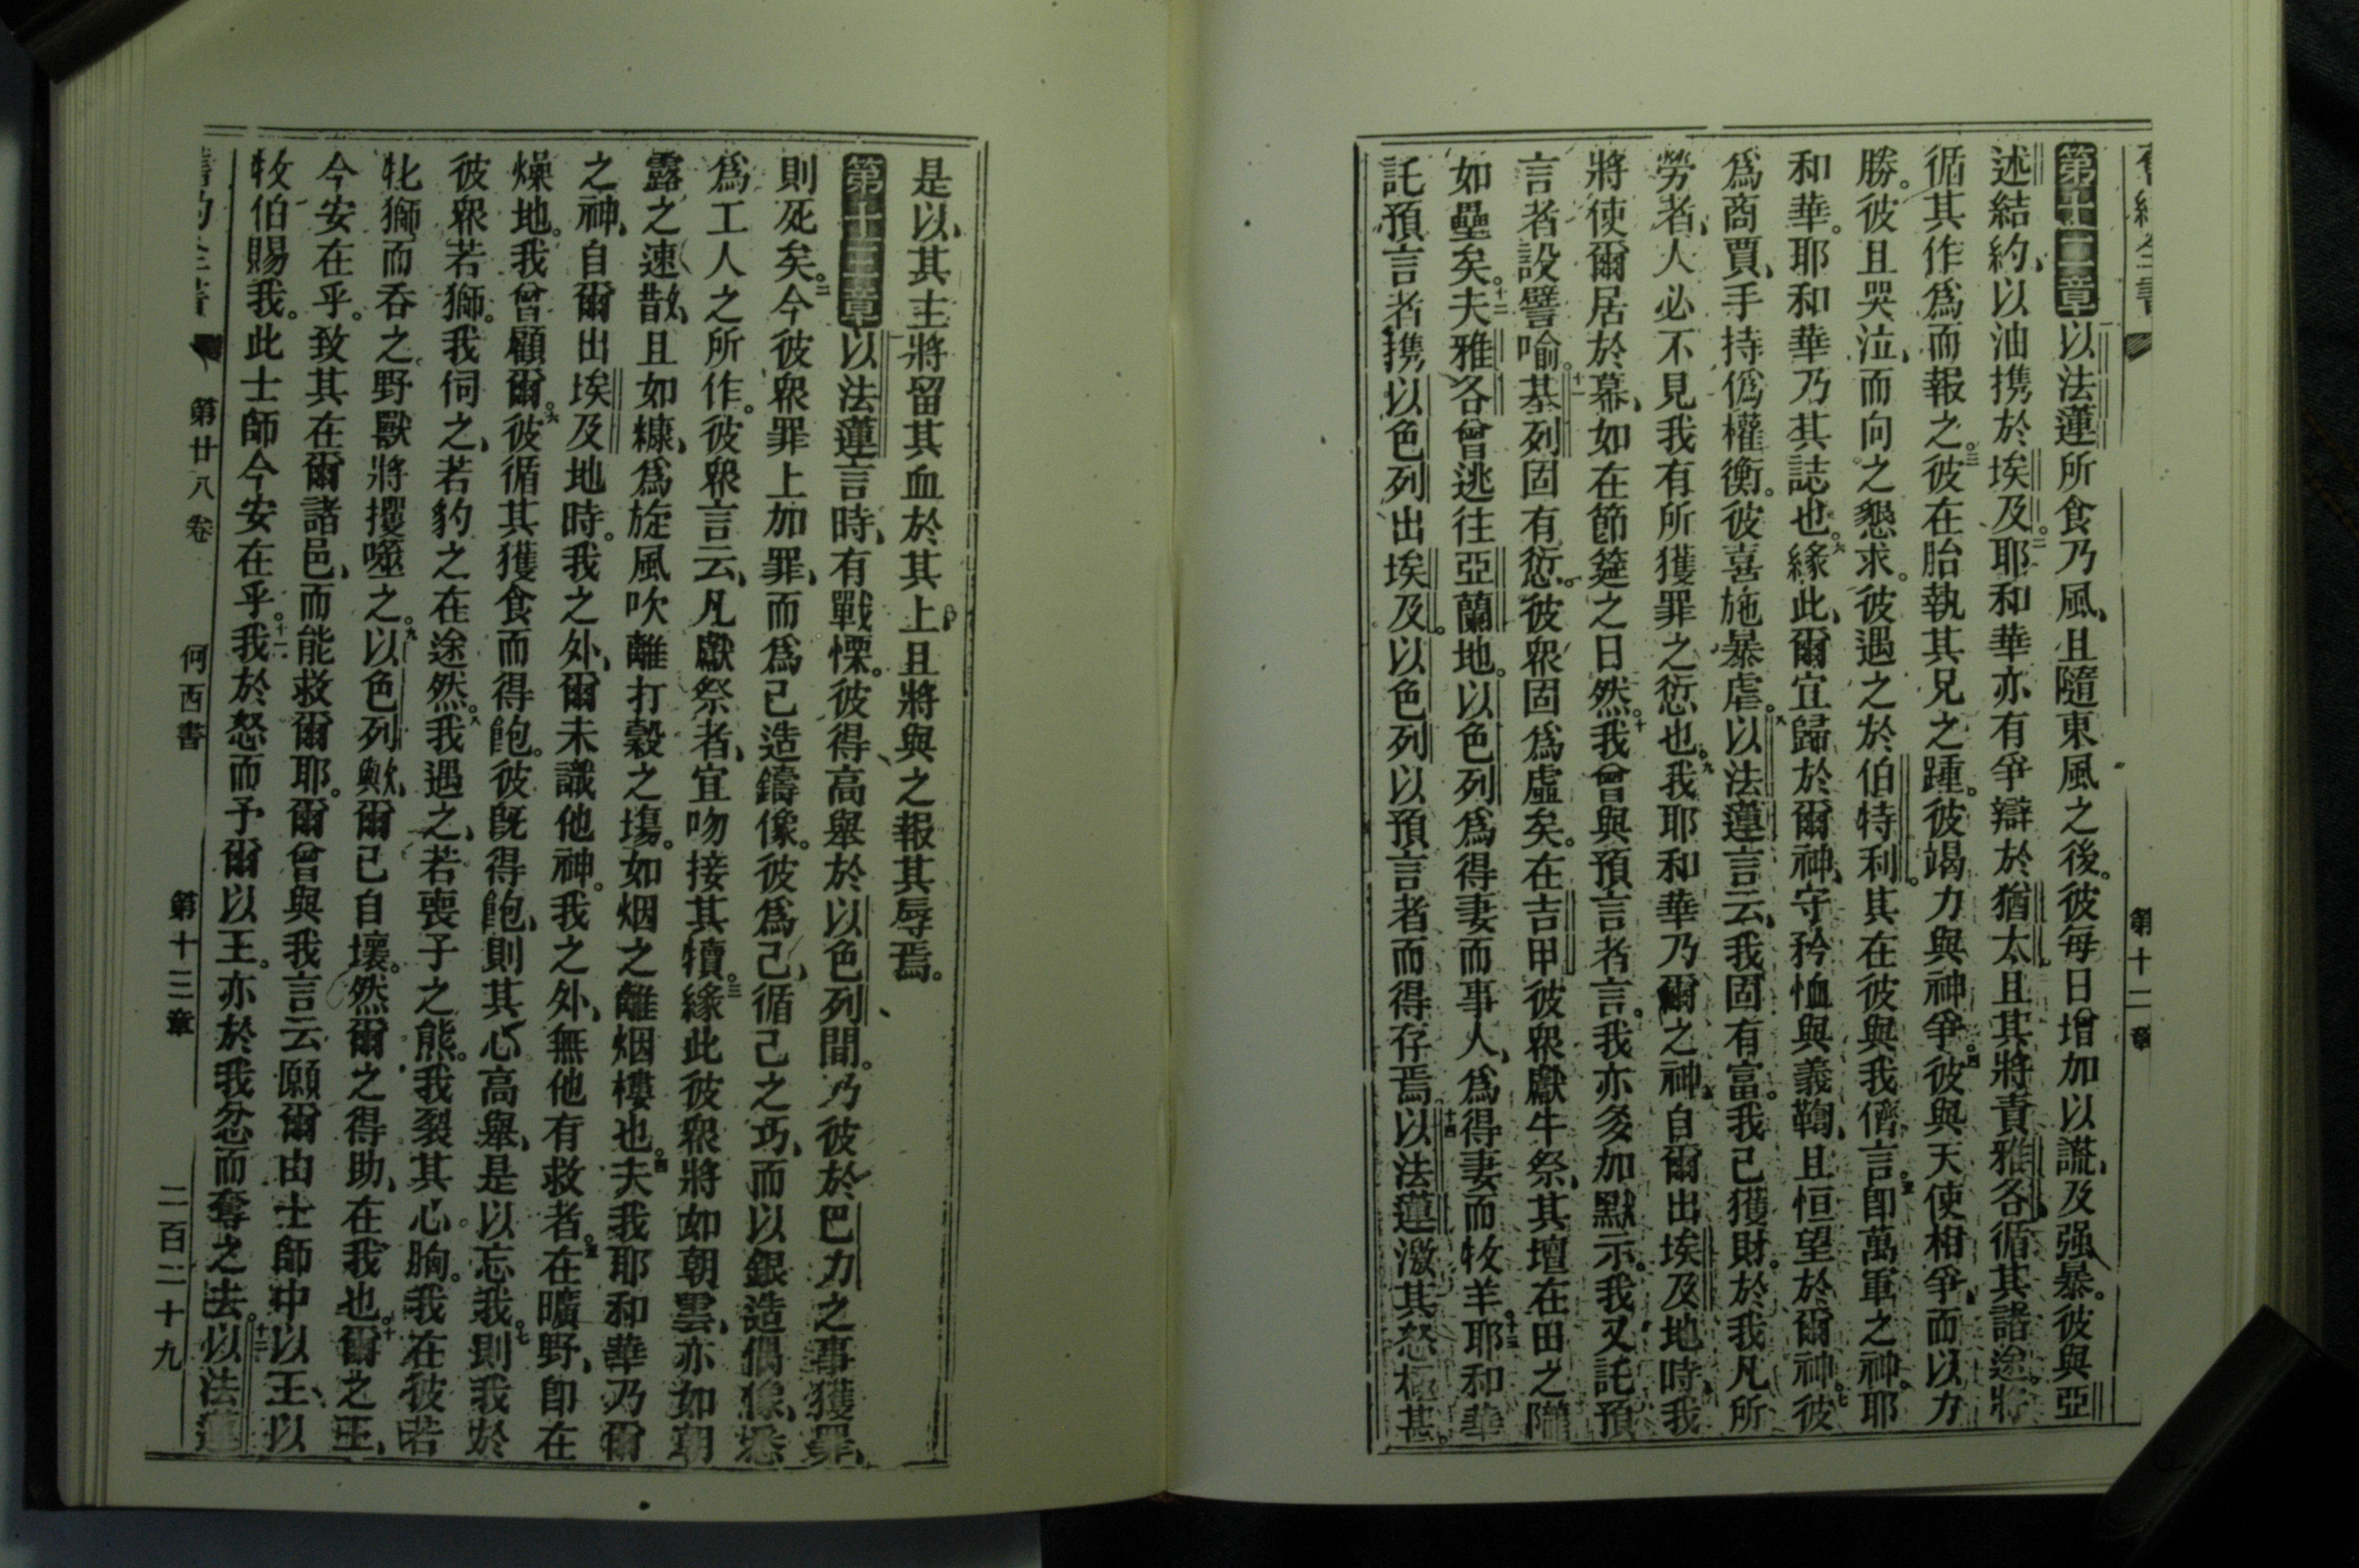 第十二章
第十二章以法蓮所食乃風、且隨東風之後。彼每日增加以謊、及强暴。彼與亞
述結約、以油携於埃及。二耶和華亦有爭辯於猶太、且其將責雅各、循其諸途。將
循其作爲而報之。三彼在胎執其兄之踵。彼竭力與神爭。四彼與天使相爭、而以力
勝。彼且哭泣、而向之懇求。彼遇之於伯特利。其在彼與我儕言。五卽萬軍之神。耶
和華。耶和華乃其誌也。六緣此、爾宜歸於爾神、守矜恤與義、且恒望於爾神。七彼
爲商賈、手持僞權衡。彼喜施暴虐。八以法蓮言云、我固有富。我已獲財。於我凡所
勞者、人必不見我有所獲罪之愆也。九我耶和華乃爾之神、自爾出埃及地時、我
將使爾居於幕、如在節筵之日然。十我曾與預言者言。我亦多加默示。我又託預
言者設譬喻。十一基列固有愆。彼眾固爲虛矣。在吉甲彼眾獻牛祭、其壇在田之隴
如壘矣。十二夫雅各曾逃往亞蘭地。以色列爲得妻而事人、爲得妻而牧羊。十三耶和華
託預言者携以色列出埃及。以色列以預言者而得存焉。十四以法蓮激其怒極甚。
是以、其主將留其血於其上、且將與之報其辱焉。
第十三章以法蓮言時、有戰慄。彼得高舉於以色列間。乃彼於巴力之事獲罪、
則死矣。二今彼眾罪上加罪、而爲己造鑄像。彼爲己、循己之巧、而以銀造偶像、悉
爲工人之所作。彼眾言云、凡獻祭者、宜吻接其犢。三緣此彼眾將如朝雲、亦如朝
露之速散、且如糠、爲旋風吹離打穀之塲。如烟之離烟樓也。四夫我耶和華乃爾
之神、自爾出埃及地時。我之外、爾未識他神。我之外、無他有救者。五在曠野、卽在
燥地。我曾顧爾。六彼循其獲食而得飽。彼既得飽、則其心高舉、是以忘我。七則我於
彼眾若獅。我伺之、若豹之在途然。八我遇之、若喪子之熊。我裂其心。胸。我在彼若
牝獅而吞之。野獸將攫噬之。九以色列歟、爾已自壞。然爾之得助、在我也。十爾之王、
今安在乎。致其在爾諸邑、而能救爾耶。爾曾與我言云、願爾由士師中以王、以
牧伯賜我。此士師今安在乎。十一我於怒而予爾以王。亦於我忿而奪之去。十二以法蓮
第廿八卷 何西書 第十三章 二百二十九